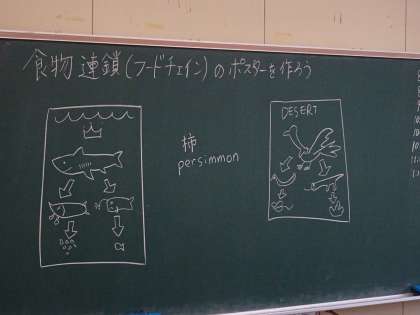 食物連鎖(フードチェイン)のポスターを作ろう
柿
persimmon
DESERT